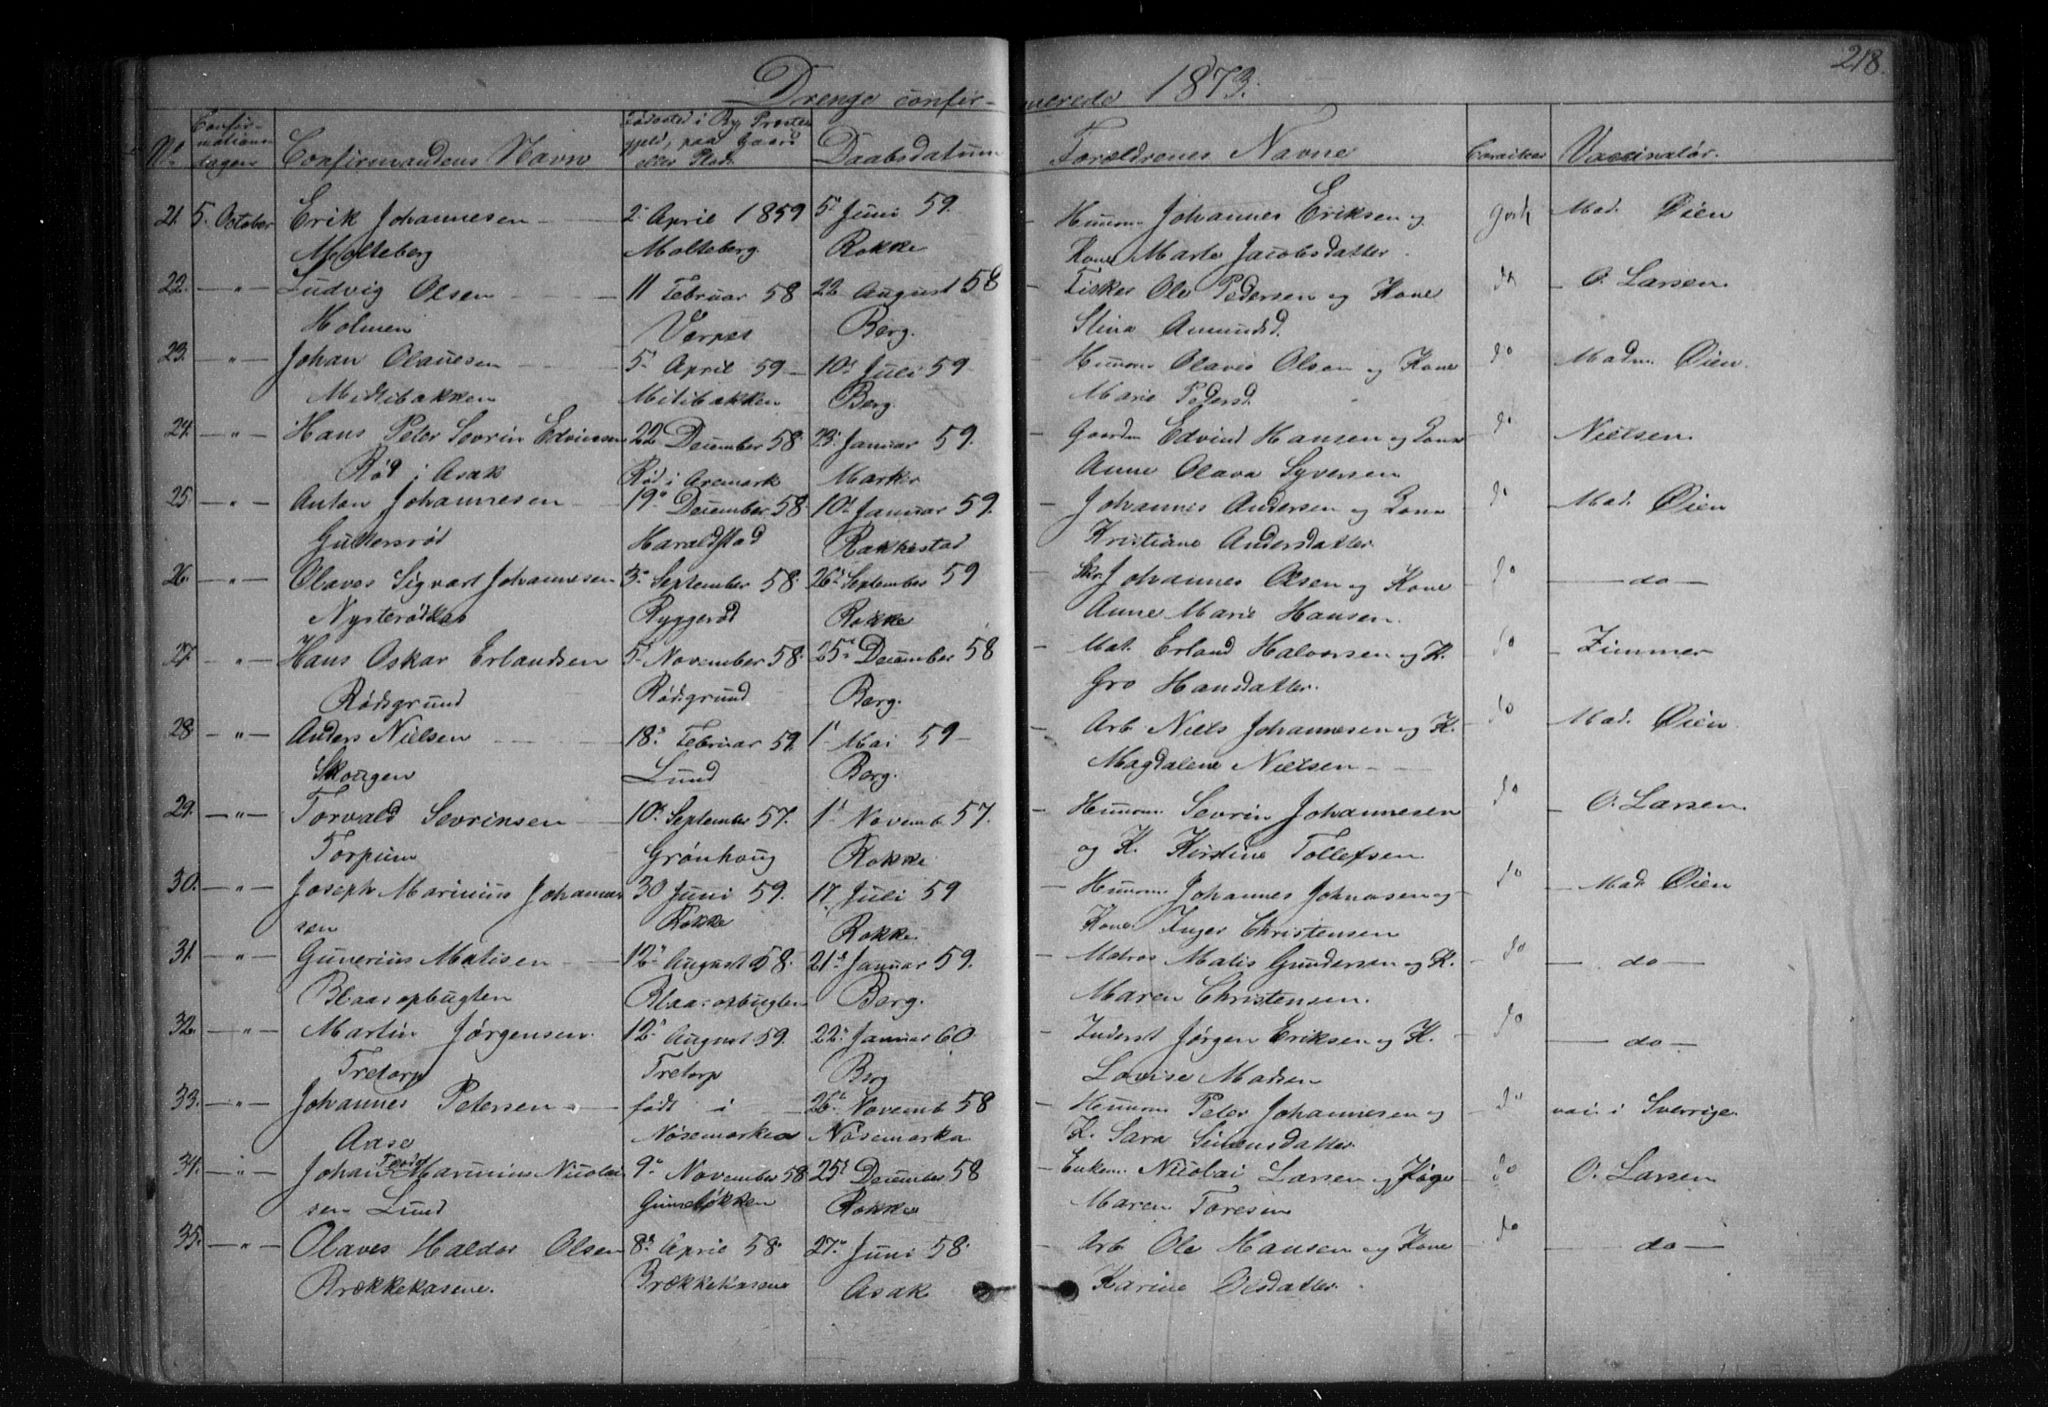 218.
Drenge confirmerede 1873.
No. Confirmationsdagen Confirmandens Navn Fødested i By, Præstegjeld, paa Gaard eller Plads Daabsdatum Forældrenes Navne Caracter Vaccinatør.
21. 5. October Erik Johannesen 2. April 1859 5. Juni 59. Huusm. Johannes Eriksen og godt Mad. Øien
Molteberg Molteberg. Rokke Kone Marte Jacobsdatter.
22. — " — Ludvig Olsen 11 Februar 58 22 August 58 Fisker Ole Pedersen og Kone do O. Larsen
Holmen Verpet Berg. Stina Amundsd.
23. — " — Johan Olausen 5. April 59 — 10. Juli 59 Huusm. Olaves Olsen og Kone do Madm. Øien.
Midtibakken Mitibakken Berg. Marie Pedersd.
24. — " — Hans Peter Sevrin Edvinsen 22 December 58 23. Januar 59. Gaardm. Edvind Hansen og Kone do Nielsen.
Rød i Asak Rød i Aremark Marker Anne Olava Syversen
25. — " — Anton Johannesen 19. December 58. 10. Januar 59. Johannes Andersen og Kone do Mad. Øien
Gundersrød Haraldstad Rakkestad Kristiane Andersdatter.
26. — " — Olaves Sigvart Johannesen 3. September 58. 26. September 59 Johannes Olsen og Kone do — do —
Ryggerød Rokke Anne Marie Hansen.
27. — " — Hans Oskar Erlandsen 5. November 58. 25. December 58 Mat. Erland Halvorsen og K. do Zimmer
Rødsgrund Rødsgrund Berg. Gro Hansdatter.
28. — " — Anders Nielsen 18. Februar 59. 1. Mai 59 — Arb. Niels Johannesen og K. do Mad. Øien.
Skougen Lund Berg. Magdalene Nielsen —
29. — " — Torvald Sevrinsen 10. September 57. 1. Novemb 57. Huusm. Sevrin Johannesen do O. Larsen.
Torpum Grønhoug Rokke. og K. Kirstine Tollefsen
30. — " — Joseph Marinius Johannes 30 Juni 59. 17. Juli 59 Huusm. Johannes Johnasen og do Mad. Øien
sen Rokke Rokke. Kone Inger Christensen
31. — " — Gunerius Matisen 12. August 58. 21. Januar 59. Matros Matis Gundersen og K. do — do —
Blaasopbugten Blaasopbugten Berg. Maren Christensen.
32. — " — Martin Jørgensen. 12. August 59. 22. Januar 60 Inderst Jørgen Eriksen og K. do — do —
Tretorp Tretorp Berg Lovise Madsen
33. — " — Johannes Petersen født i 26. Novemb 58 Huusm. Peter Johannesen og do vac. i Sverrige
Aase Nøsemarken Nøsemarka K. Sara Simensdatter
34. — " — Johan Marinius Nicolai 9. November 58 25. December 58 Enkem. Nicolai Larsen og Pige do O. Larsen
sen Lund Gunneløkken Rokke Maren Toresen
35. — " — Olaves Haldor Olsen 8. April 58. 27. Juni 58. Arb. Ole Hansen og Kone do — do —
Brækkekasene. Brækkekasene Asak Karine Olsdatter.